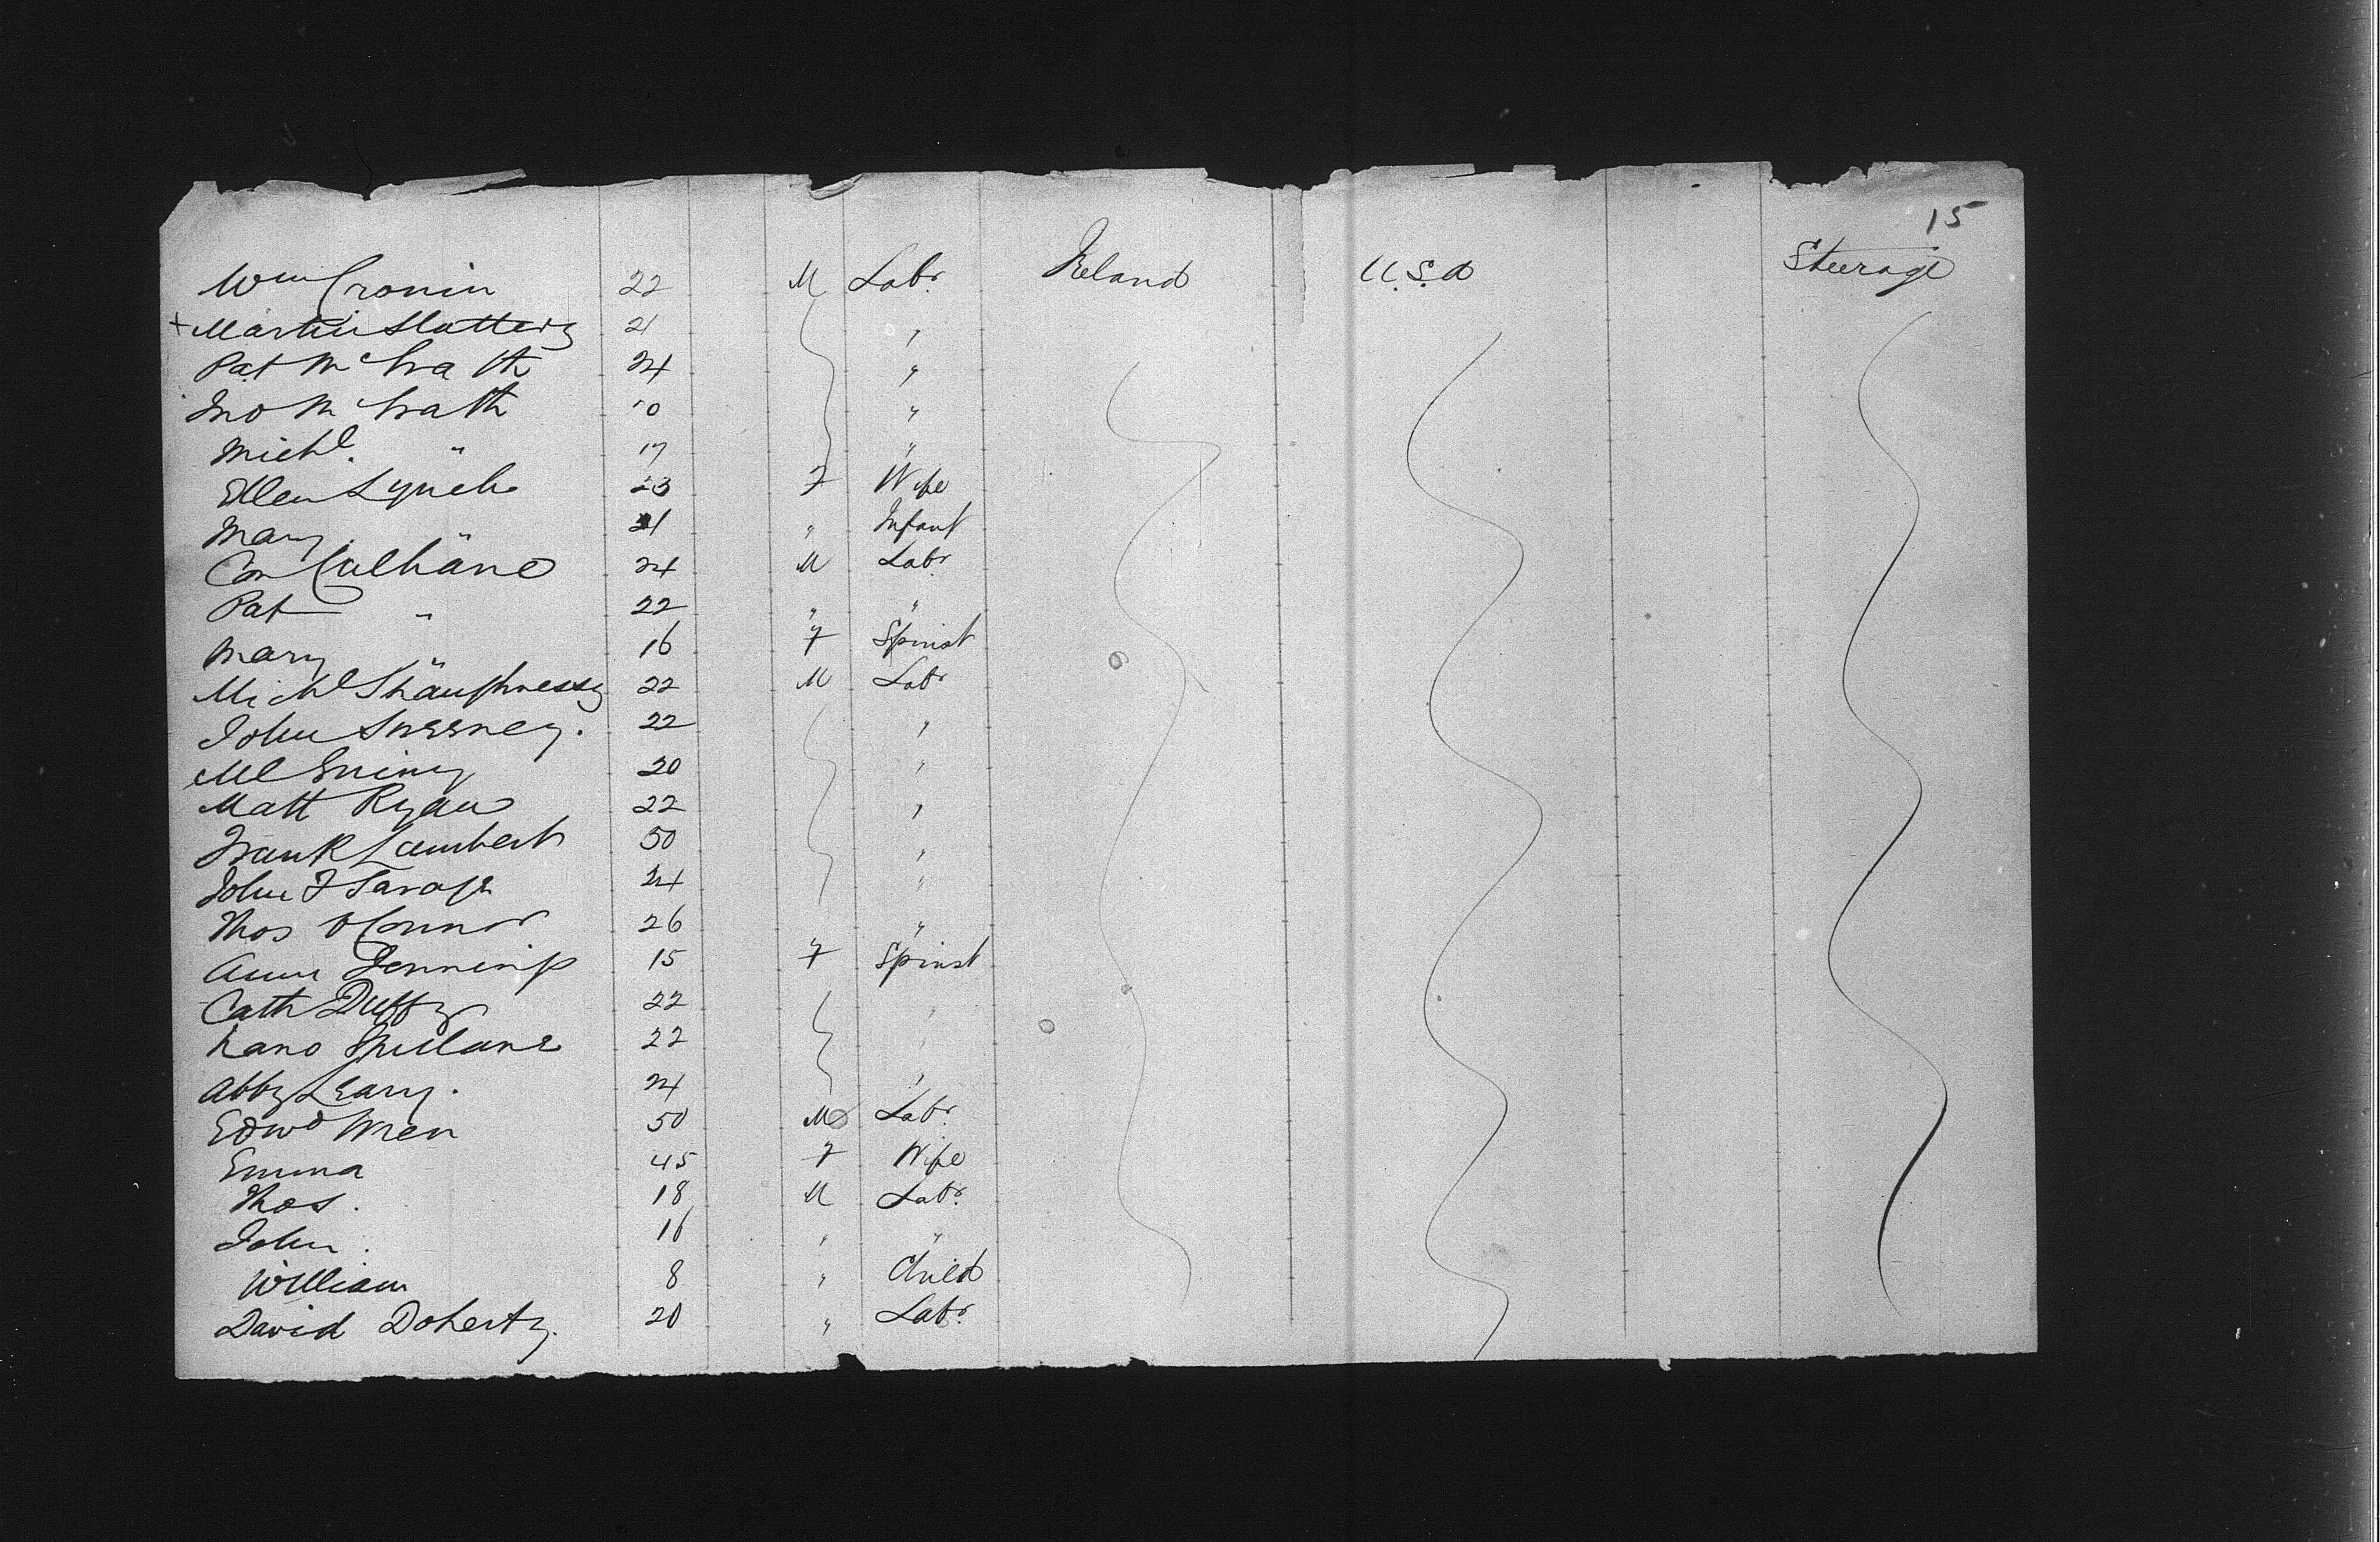 15
Wm Cronin 22 M Labr Ireland U.S.A Steerage
+ Martin Slattery 21 "
Pat McGrath 24 "
Jno McGrath "
Michl. " 17 "
Ellen Lynch 23 F Wife
Mary " " Infant
Con Culhane 24 M Labr
Pat " 22 " "
Mary " 16 F Spinst
Michl Shaughnessy 22 M Labr
John Sweeney. 22 "
Ml 20 "
Matt Ryan 22 "
Frank Lambert 50 "
John F Savage 24 "
Thos O'Connor 26 "
Annie Jennings 15 F Spinst
Cath Duffy 22 "
Spillane 22 "
Abby Leary. 24 "
Edwd Wren 50 M Labr.
Emma 45 F Wife
Thos. 18 M Labr.
John. 16 " "
William 8 " Child
David Doherty. 20 " Labr.